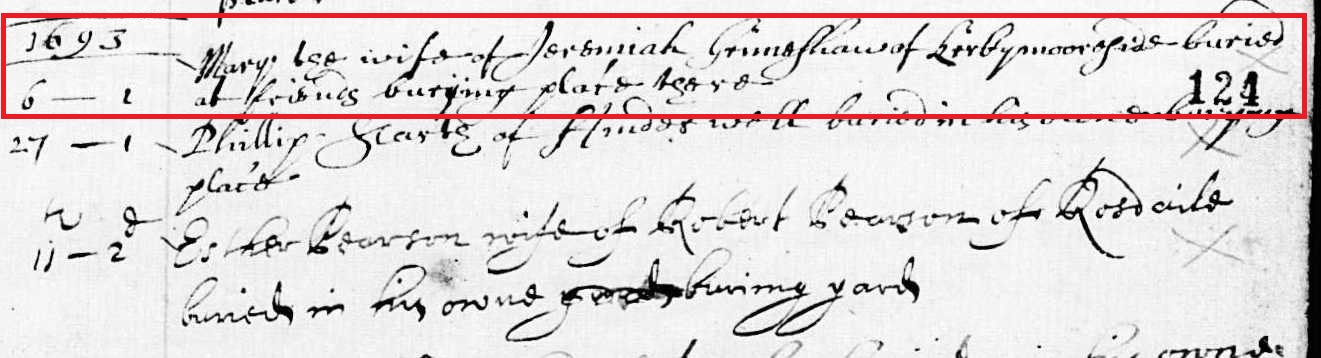 1693
Mary the wife of Jeremiah Grimshaw of Kerbymoorside buried
6 — 1 at friends burying place there
124
27 — 1 Phillip Hartas of Hindrewell buried in his owne burying
place
11 — 2d Esther Pearson wife of Robert Pearson of Rosdaile
buried in his owne buring yard
in his owne